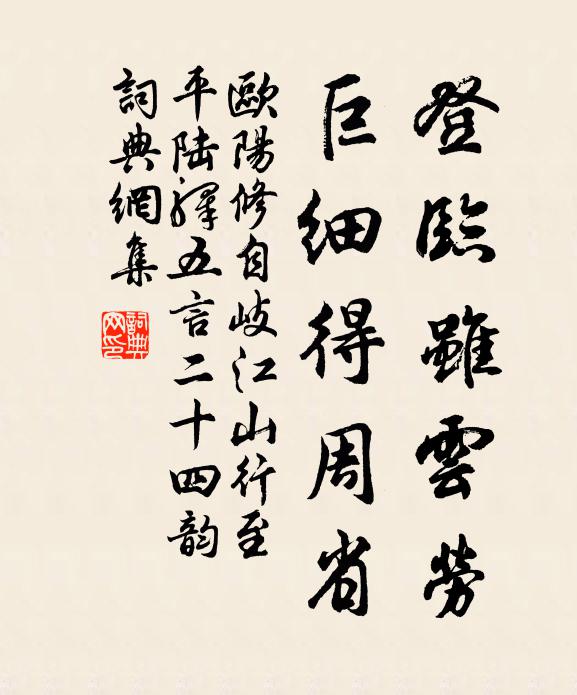 登臨雖雲勞
巨細得周省
歐陽修自岐江山行至
平陸驛五言二十四韵
詞典網集
詞典
网印